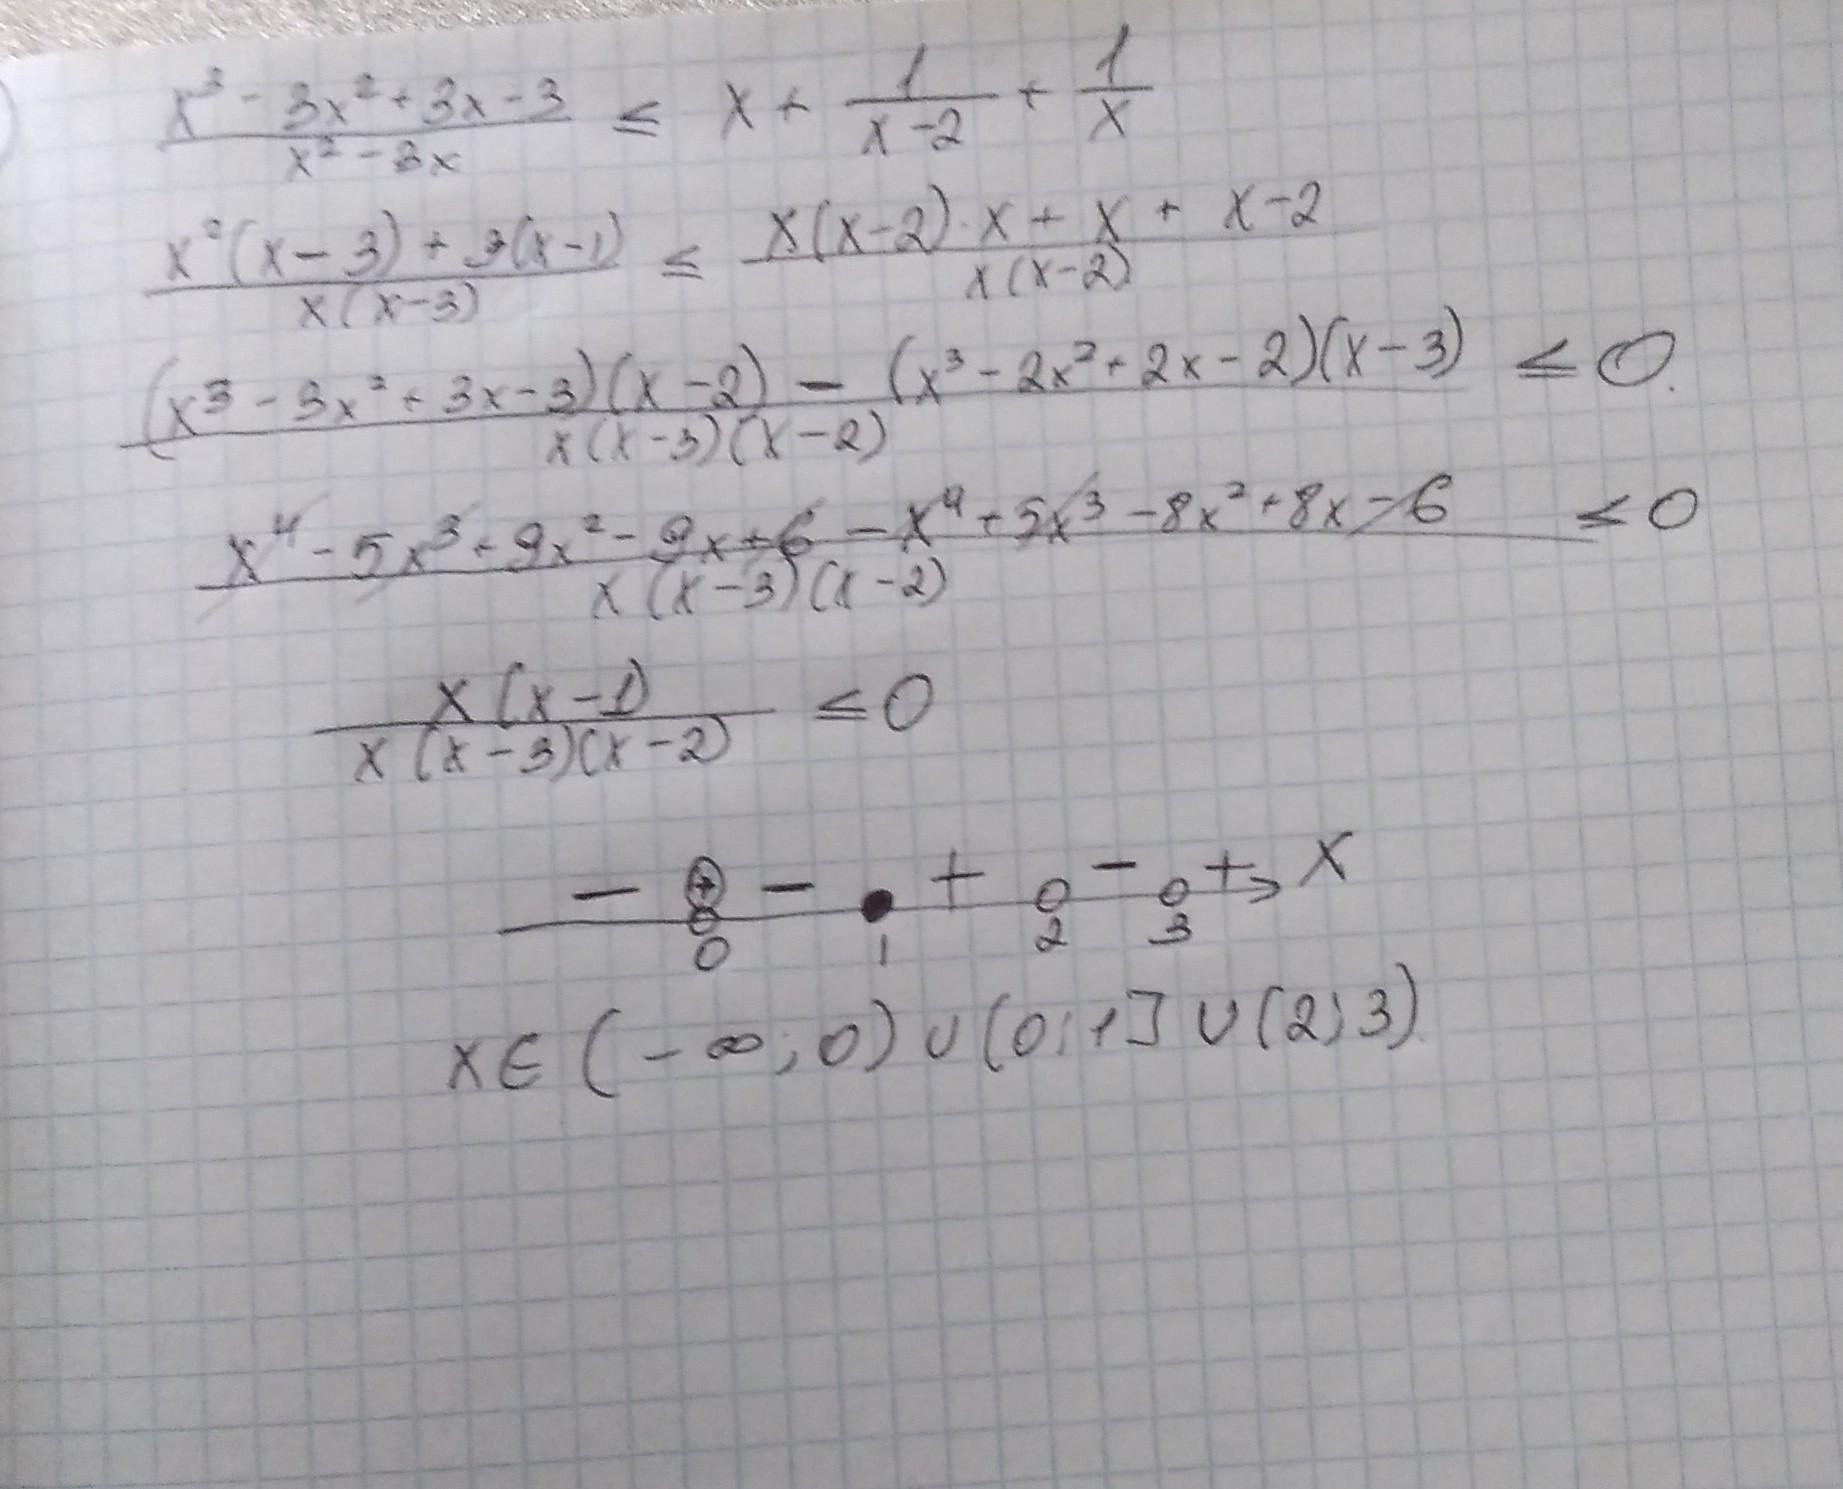 x³ - 3x² + 3x - 3 / x² - 3x ≤ x + 1 / x - 2 + 1 / x
x²(x - 3) + 3(x - 1) / x(x - 3) ≤ x(x - 2) · x + x + x - 2 / x(x - 2)
(x³ - 3x² + 3x - 3)(x - 2) - (x³ - 2x² + 2x - 2)(x - 3) / x(x - 3)(x - 2) ≤ 0.
x⁴ - 5x³ + 9x² - 9x + 6 - x⁴ + 5x³ - 8x² + 8x - 6 / x(x - 3)(x - 2) ≤ 0
x(x - 1) / x(x - 3)(x - 2) ≤ 0
- + - + - + x
0 1 2 3
x ∈ (-∞; 0) ∪ (0; 1] ∪ (2; 3)